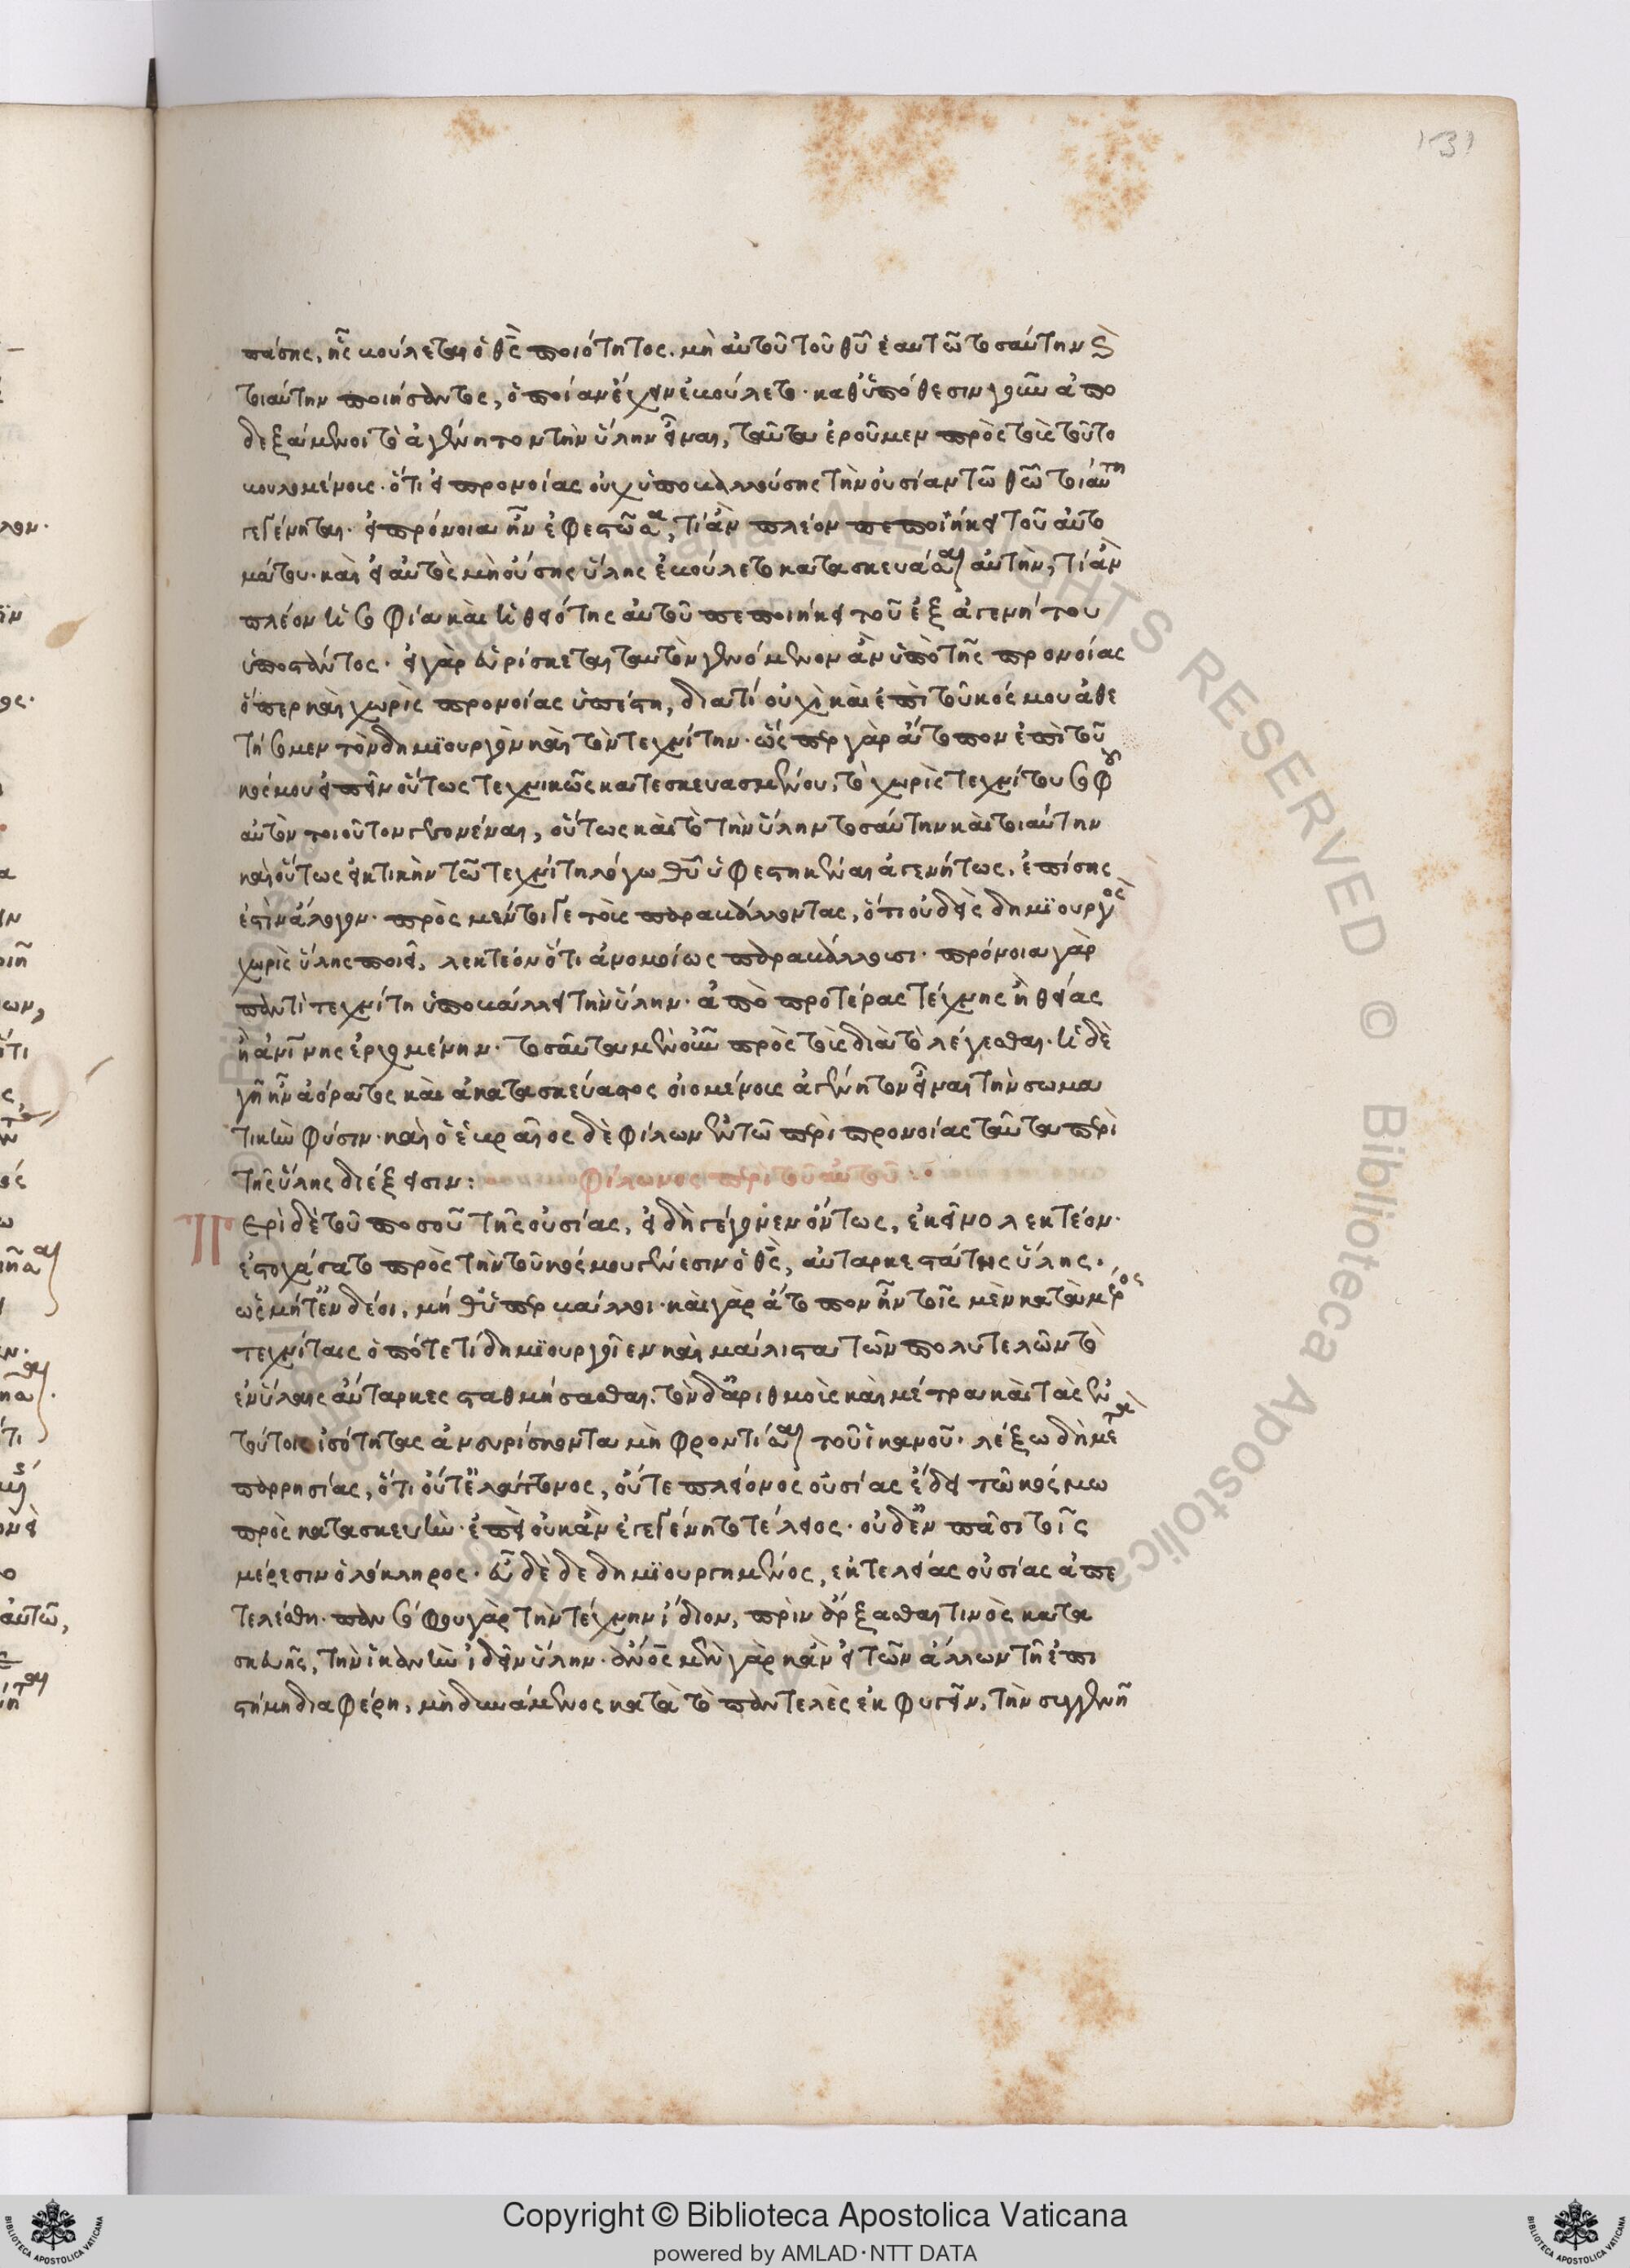 131
πάσης, ἧς βούλεται ὁ θς ποιότητος. μὴ αὐτοῦ τοῦ θυ ἑαυτῶ τοσαύτην καὶ
τοιαύτην ποιήσαντος, ὁποίαν ἔχειν ἐβούλετο. καθ' ὑπόθεσιν γοῦν ἀπο
δεξάμενοι τὸ ἀγένητον τὴν ὕλην εἶναι, ταῦτα ἐροῦμεν πρὸς τοὺς τοῦτο
βουλομένοις. ὅτι εἰ προνοίας οὐχ ὑποβαλλούσης τὴν οὐσίαν τῶ θεῶ τοιάυτη
γεγένηται. εἰ πρόνοια ἦν ἐφεστῶσα, τί ἂν πλέον πεποιήκει τοῦ αὐτο
μάτου. καὶ εἰ αὐτὸς μὴ οὔσης ὕλης ἐβούλετο κατασκευάσαι αὐτὴν, τί ἂν
πλέον ἡ σοφία καὶ ἡ θειότης αὐτοῦ πεποιήκει τοῦ ἐξ ἀγενήτου
ὑποστάντος. εἰ γὰρ εὑρίσκεται ταυτὸν γενόμενον ἂν ὑπὸ τῆς προνοίας
ὅπερ καὶ χωρὶς προνοίας ὑπέστη, διατί οὐχὶ καὶ ἐπὶ τοῦ κόσμου ἀθε
τήσομεν τὸν δημϊουργὸν καὶ τὸν τεχνίτην. ὥσπερ γὰρ ἄτοπον ἐπὶ τοῦ
κόσμου εἰπεῖν οὕτως τεχνικῶς κατεσκευασμένου, τὸ χωρὶς τεχνίτου σοφοῦ
αὐτὸν τοιοῦτον γεγονέναι, οὕτως καὶ τὸ τὴν ὕλην τοσαύτην καὶ τοιαύτην
καὶ οὕτως εἰκτικὴν τῶ τεχνίτη λόγω θυ ὑφεστηκέναι ἀγενήτως, ἐπίσης
ἐστὶν ἄλογον. πρὸς μέντοιγε τοὺς παραβάλλοντας, ὅτι οὐδεὶς δημϊουργὸς
χωρὶς ὕλης ποιεῖ, λεκτέον ὅτι ἀνομοίως παραβάλλουσι. πρόνοια γὰρ
παντὶ τεχνίτη ὑποβάλλει τὴν ὕλην. ἀπὸ προτέρας τέχνης ἢ θείας
ἢ ἀνίνης ἐρχομένην. τοσαῦτα μὲν οὖν πρὸς τοὺς διὰ τὸ λέγεσθαι. ἡ δὲ
γῆ ἦν ἀόρατος καὶ ἀκατασκεύαστος οἰομένοις ἀγένητον εἶναι τὴν σωμα
τικὴν φύσιν. καὶ ὁ ἑβραῖος δὲ φίλων ἐν τῶ περὶ προνοίας ταῦτα περὶ
τῆς ὕλης διέξεισιν:
Φίλωνος περὶ τοῦ αὐτοῦ:
Περὶ δὲ τοῦ ποσοῦ τῆς οὐσίας, εἰ δὴ γέγονεν ὄντως, ἐκεῖνο λεκτέον.
ἐστοχάσατο πρὸς τὴν τοῦ κόσμου γένεσιν ὁ θς, αὐταρκεστάτης ὕλης.
ὡς μήτ' ἐνδέοι, μήθ' ὑπερβάλλοι. καὶ γὰρ ἄτοπον ἦν τοῖς μὲν κατὰ μέρος
τεχνίταις ὁπότε τί δημϊουργοῖεν καὶ μάλιστα τῶν πολυτελῶν τὸ
ἐν ὕλαις αὔταρκες σταθμήσασθαι. τὸν δ' ἀριθμοὺς καὶ μέτρα καὶ τὰς ἐν
τούτοις ἰσότητας ἀνευρίσκοντα μὴ φροντίσαι τοῦ ἱκανοῦ. λέξω δὴ μετὰ
παρρησίας, ὅτι οὔτ' ἐλάττονος, οὔτε πλείονος οὐσίας ἔδει τῶ κόσμω
πρὸς κατασκευὴν. ἐπεὶ οὐκ ἂν ἐγεγένητο τέλειος. οὐδ' ἐν πᾶσι τοῖς
μέρεσιν ὁλόκληρος. εὖ δὲ δεδημϊουργημένος, ἐκ τελείας οὐσίας ἀπε
τελέσθη. πανσόφου γὰρ τὴν τέχνην ἴδιον, πρὶν ἄρξασθαι τινὸς κατα
σκευῆς, τὴν ἱκανὴν ἰδεῖν ὕλην. ἄνος μὲν γὰρ κἂν εἰ τῶν ἄλλων τῆ ἐπι
στήμη διαφέρη, μὴ δυνάμενος κατὰ τὸ παντελὲς ἐκφυγεῖν, τὴν συγγενῆ
Copyright © Biblioteca Apostolica Vaticana
powered by AMLAD·NTT DATA